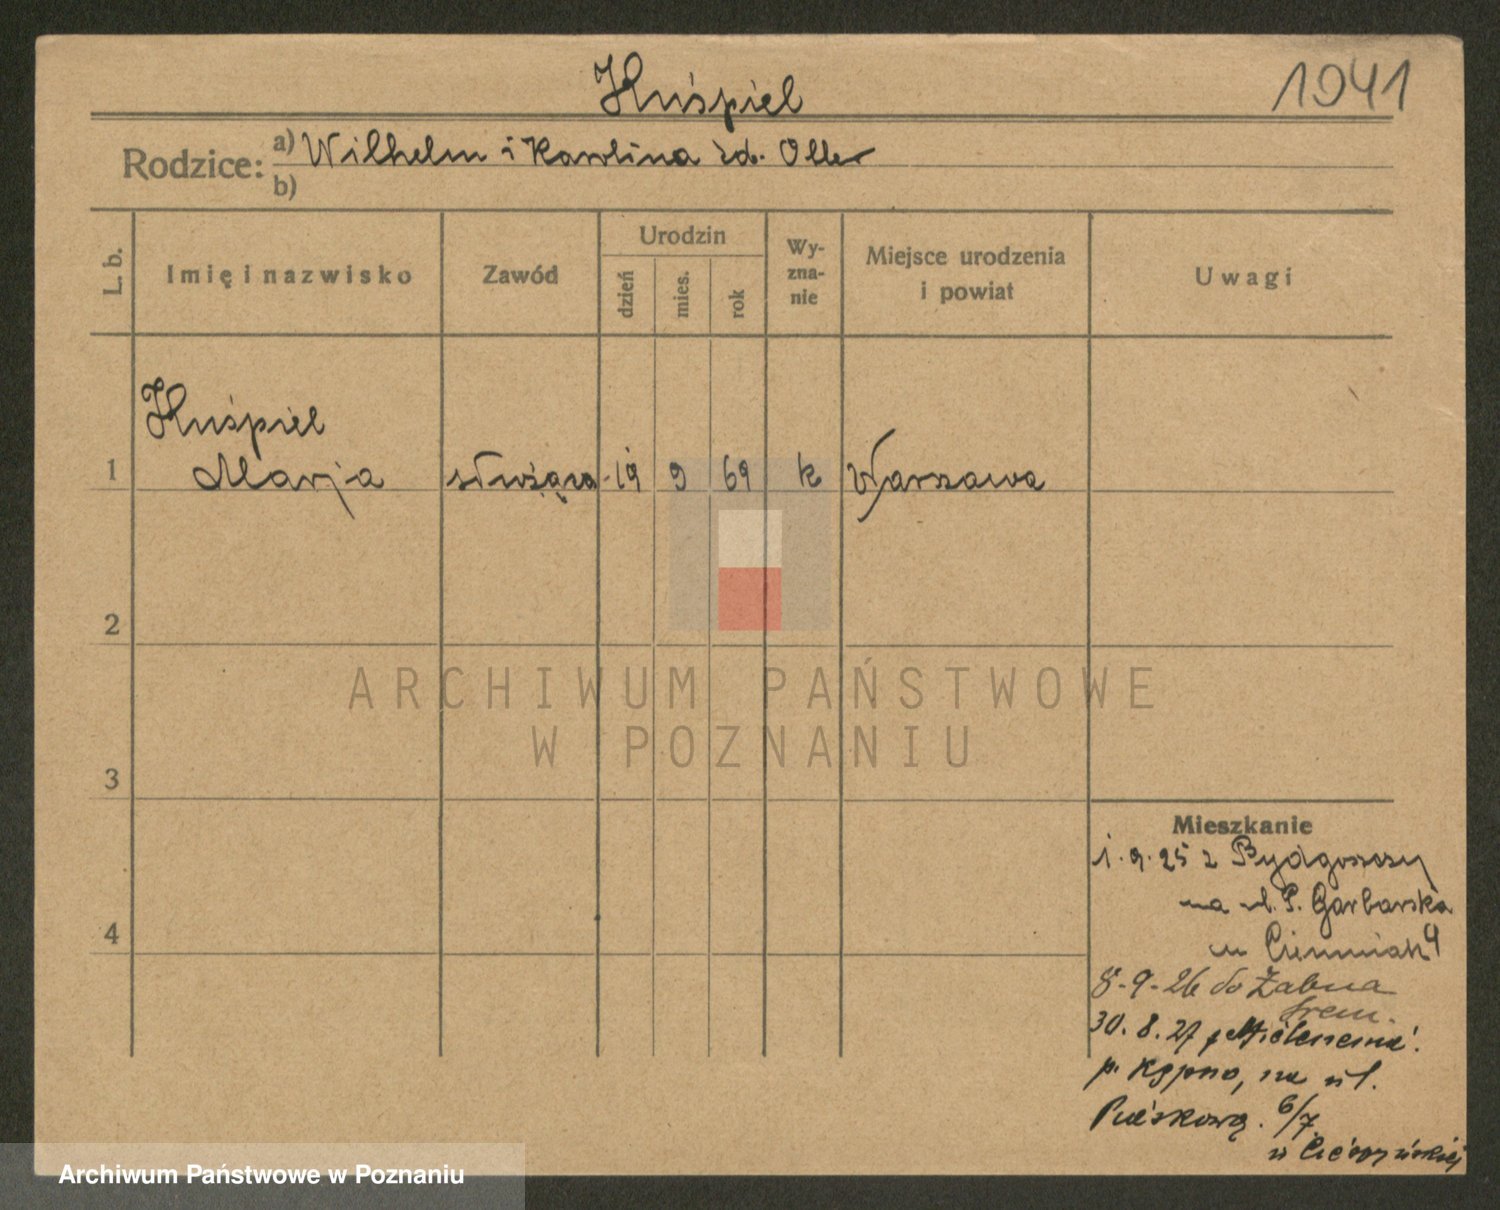 Huśpiel
1941
Rodzice: a) Wilhelm i Karolina zd. Oller
b)
L. b.
Imię i nazwisko
Zawód
Urodzin
dzień
mies.
rok
Wy-
zna-
nie
Miejsce urodzenia
i powiat
Uwagi
Huśpiel
1 Marja służąca 19 9 69 k Warszawa
2
3
4
ARCHIWUM PAŃSTWOWE
W POZNANIU
Mieszkanie
1.9.25 z Bydgoszczy
na ul. P. Garbarska
u 4
8-9-26 do Żabna
Śrem.
30.8.27 z
p. Kępno, na ul.
Piaskową. 6/7
u
Archiwum Państwowe w Poznaniu